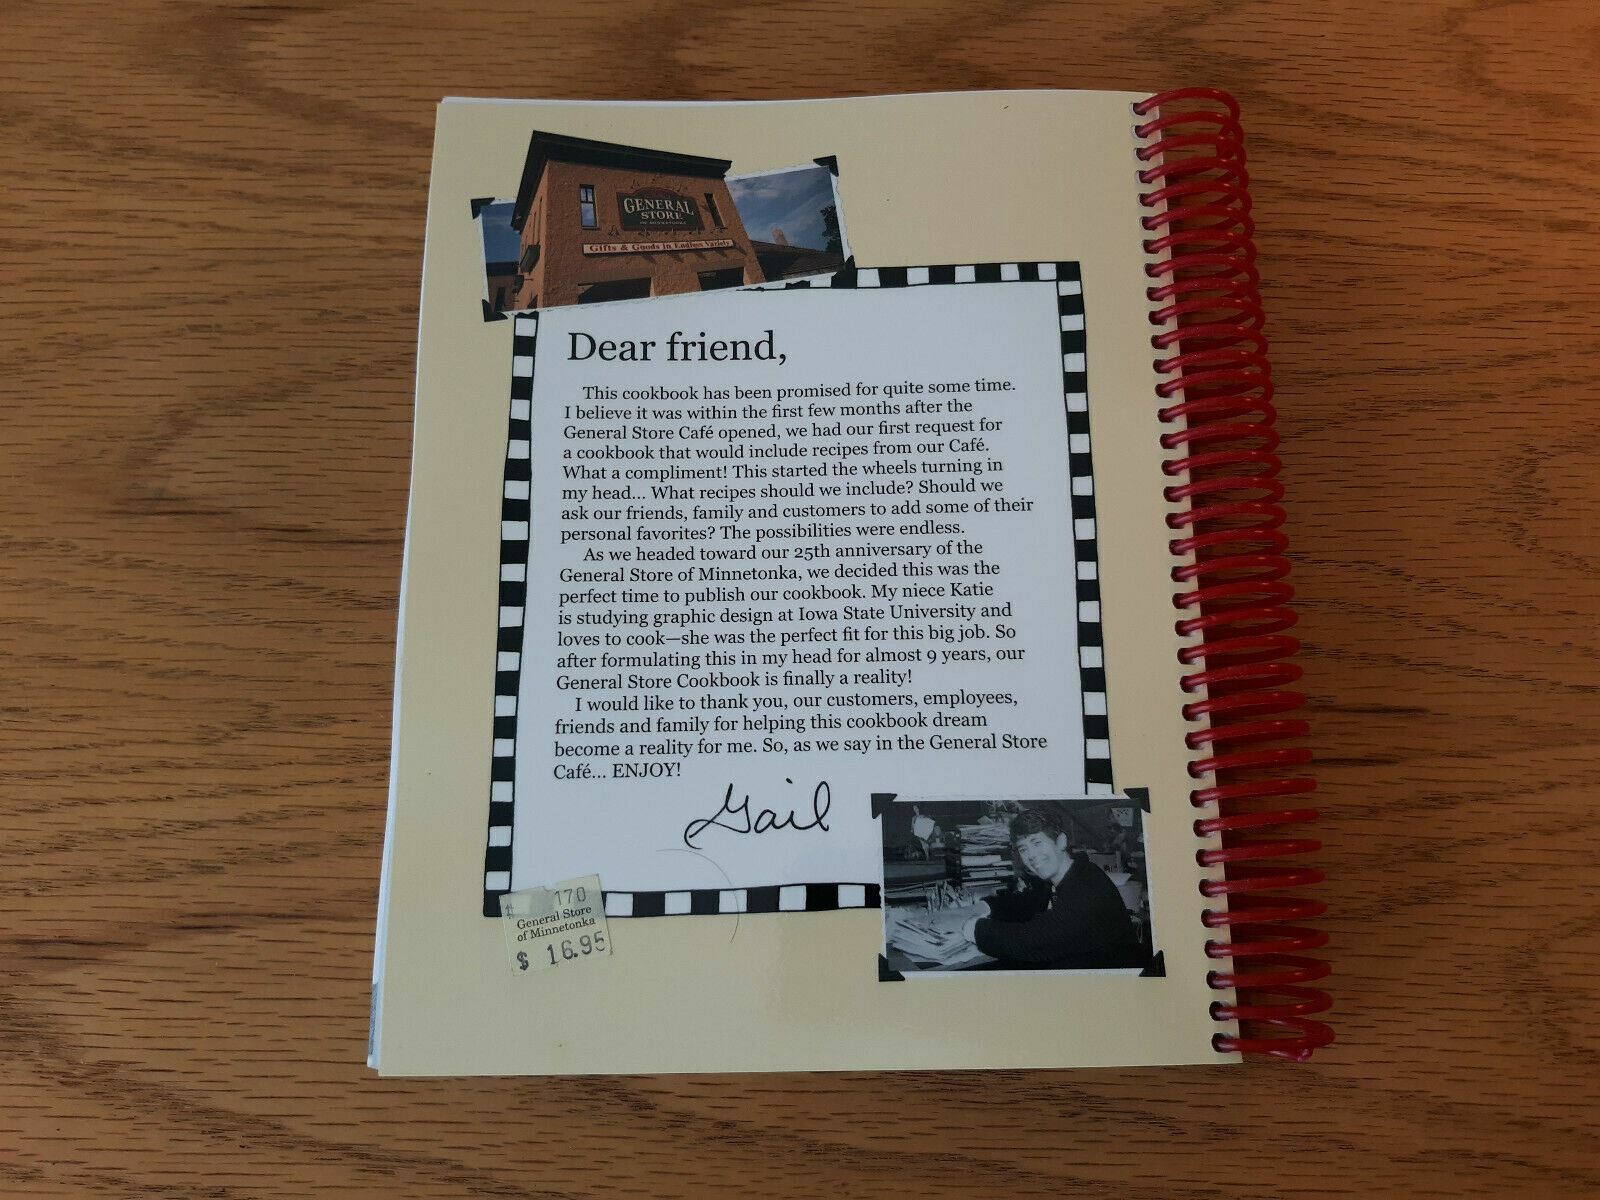 GENERAL
STORE
OF MINNETONKA
Gifts & Goods in Endless Variety
Dear friend,
This cookbook has been promised for quite some time.
I believe it was within the first few months after the
General Store Café opened, we had our first request for
a cookbook that would include recipes from our Café.
What a compliment! This started the wheels turning in
my head... What recipes should we include? Should we
ask our friends, family and customers to add some of their
personal favorites? The possibilities were endless.
As we headed toward our 25th anniversary of the
General Store of Minnetonka, we decided this was the
perfect time to publish our cookbook. My niece Katie
is studying graphic design at Iowa State University and
loves to cook—she was the perfect fit for this big job. So
after formulating this in my head for almost 9 years, our
General Store Cookbook is finally a reality!
I would like to thank you, our customers, employees,
friends and family for helping this cookbook dream
become a reality for me. So, as we say in the General Store
Café... ENJOY!
Gail
170
General Store
of Minnetonka
$ 16.95